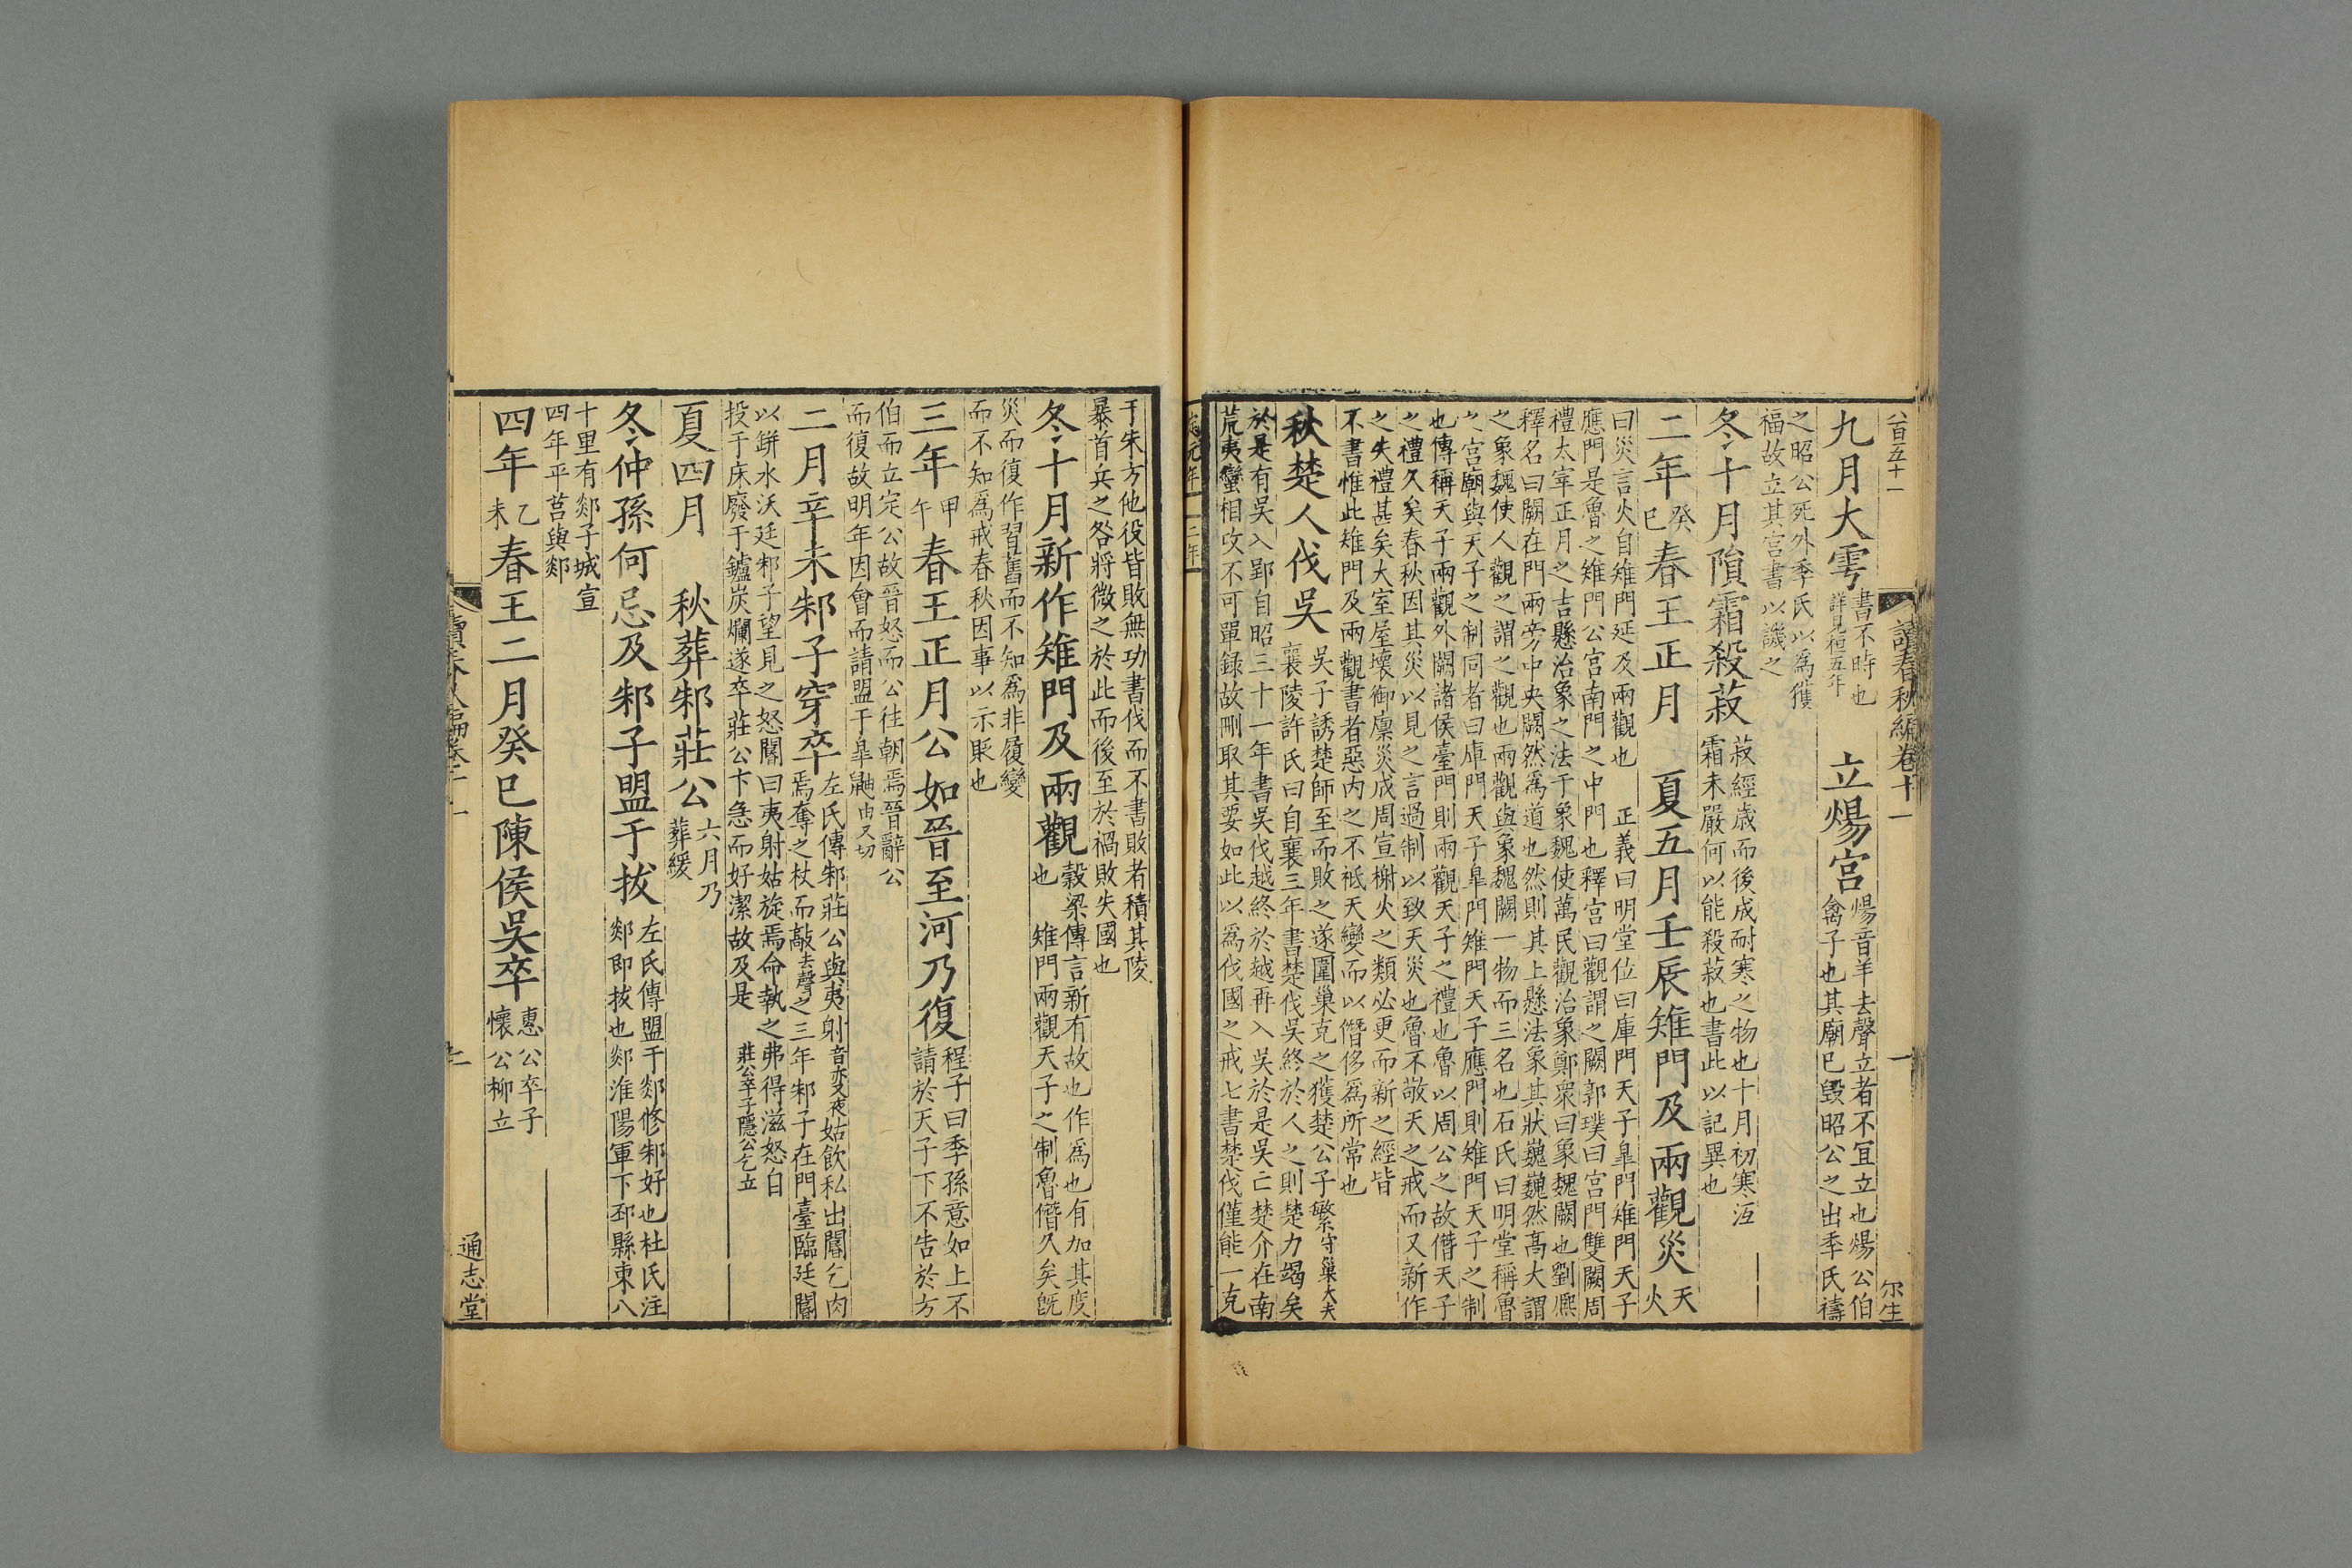 六百五十一
讀春秋編卷十一
一
尔生
九月大雩
書不時也
詳見桓五年
立煬宮
煬音羊去聲立者不宜立也煬公伯
禽子也其廟已毁昭公之出季氏禱
之昭公死外季氏以為獲
福故立其宮書以譏之
冬十月隕霜殺菽
菽經歲而後成耐寒之物也十月初寒沍
霜未嚴何以能殺菽也書此以記異也
二年
癸
巳
春王正月　夏五月壬辰雉門及兩觀災
天
火
曰災言火自雉門延及兩觀也　正義曰明堂位曰庫門天子皐門雉門天子
應門是魯之雉門公宮南門之中門也釋宮曰觀謂之闕郭璞曰宮門雙闕周
禮太宰正月之吉懸治象之法于象魏使萬民觀治象鄭衆曰象魏闕也劉熈
釋名曰闕在門兩旁中央闕然為道也然則其上懸法象其狀巍巍然高大謂
之象魏使人觀之謂之觀也兩觀與象魏闕一物而三名也石氏曰明堂稱魯
之宮廟與天子之制同者曰庫門天子皐門雉門天子應門則雉門天子之制
也傳稱天子兩觀外闕諸侯臺門則兩觀天子之禮也魯以周公之故僭天子
之禮久矣春秋因其災以見之言過制以致天災也魯不敬天之戒而又新作
之失禮甚矣大室屋壞御廩災成周宣榭火之類必更而新之經皆
不書惟此雉門及兩觀書者惡内之不祗天變而以僭侈為所常也
秋楚人伐吳
吳子誘楚師至而敗之遂圍巢克之獲楚公子繁守巢大夫
襄陵許氏曰自襄三年書楚伐吳終於人之則楚力竭矣
於是有吳入郢自昭三十一年書吳伐越終於越再入吳於是吳亡楚介在南
荒夷蠻相攻不可單録故刪取其要如此以為伐國之戒七書楚伐僅能一克
定元年　二年
于朱方他役皆敗無功書伐而不書敗者積其陵
暴首兵之咎將微之於此而後至於禍敗失國也
冬十月新作雉門及兩觀
穀梁傳言新有故也作為也有加其度
也　雉門兩觀天子之制魯僭久矣旣
災而復作習舊而不知為非履變
而不知為戒春秋因事以示貶也
三年
甲
午
春王正月公如晉至河乃復
程子曰季孫意如上不
請於天子下不告於方
伯而立定公故晉怒而公往朝焉晉辭公
而復故明年因會而請盟于皐鼬由又切
二月辛未邾子穿卒
左氏傳邾莊公與夷射音亦又夜姑飲私出閽乞肉
焉奪之杖而敲去聲之三年邾子在門臺臨廷閽
以缾水沃廷邾子望見之怒閽曰夷射姑旋焉命執之弗得滋怒自
投于床廢于鑪炭爛遂卒莊公卞急而好潔故及是　莊公卒子隱公乞立
夏四月　秋葬邾莊公
六月乃
葬緩
冬仲孫何忌及邾子盟于拔
左氏傳盟于郯修邾好也杜氏注
郯即拔也郯淮陽軍下邳縣東八
十里有郯子城宣
四年平莒與郯
四年
乙
未
春王二月癸巳陳侯吳卒
惠公卒子
懷公柳立
讀春秋編卷十一
通志堂